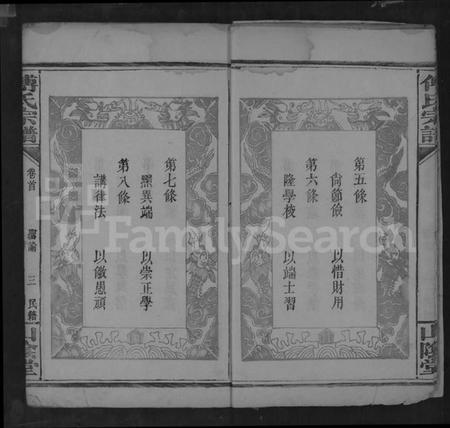 傅氏宗譜
第五條
尚節儉 以惜財用
第六條
隆學校 以端士習
山陰堂
第七條
黜異端 以崇正學
第八條
講律法 以儆愚頑
傅氏宗譜
卷首
諭
三
民籍
山陰堂
FamilySearch